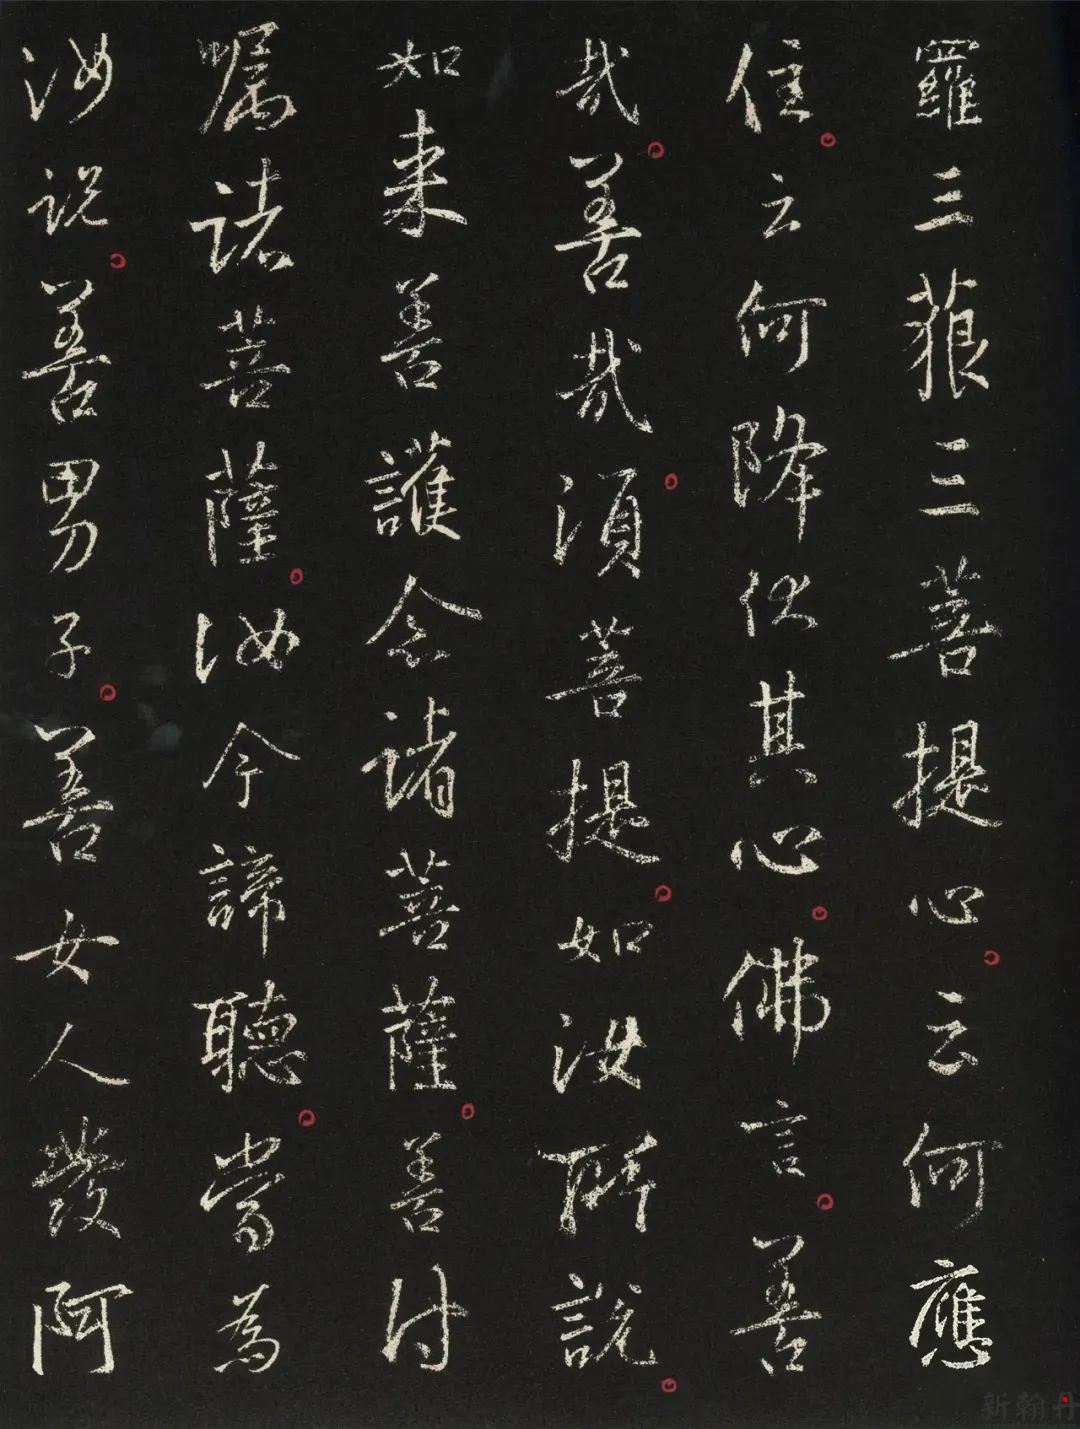 羅三藐三菩提心。云何應
住。云何降伏其心。佛言。善
哉。善哉。須菩提。如汝所說。
如来善護念諸菩薩。善付
嘱諸菩薩。汝今諦聽。當為
汝説。善男子。善女人發阿
新翰丹